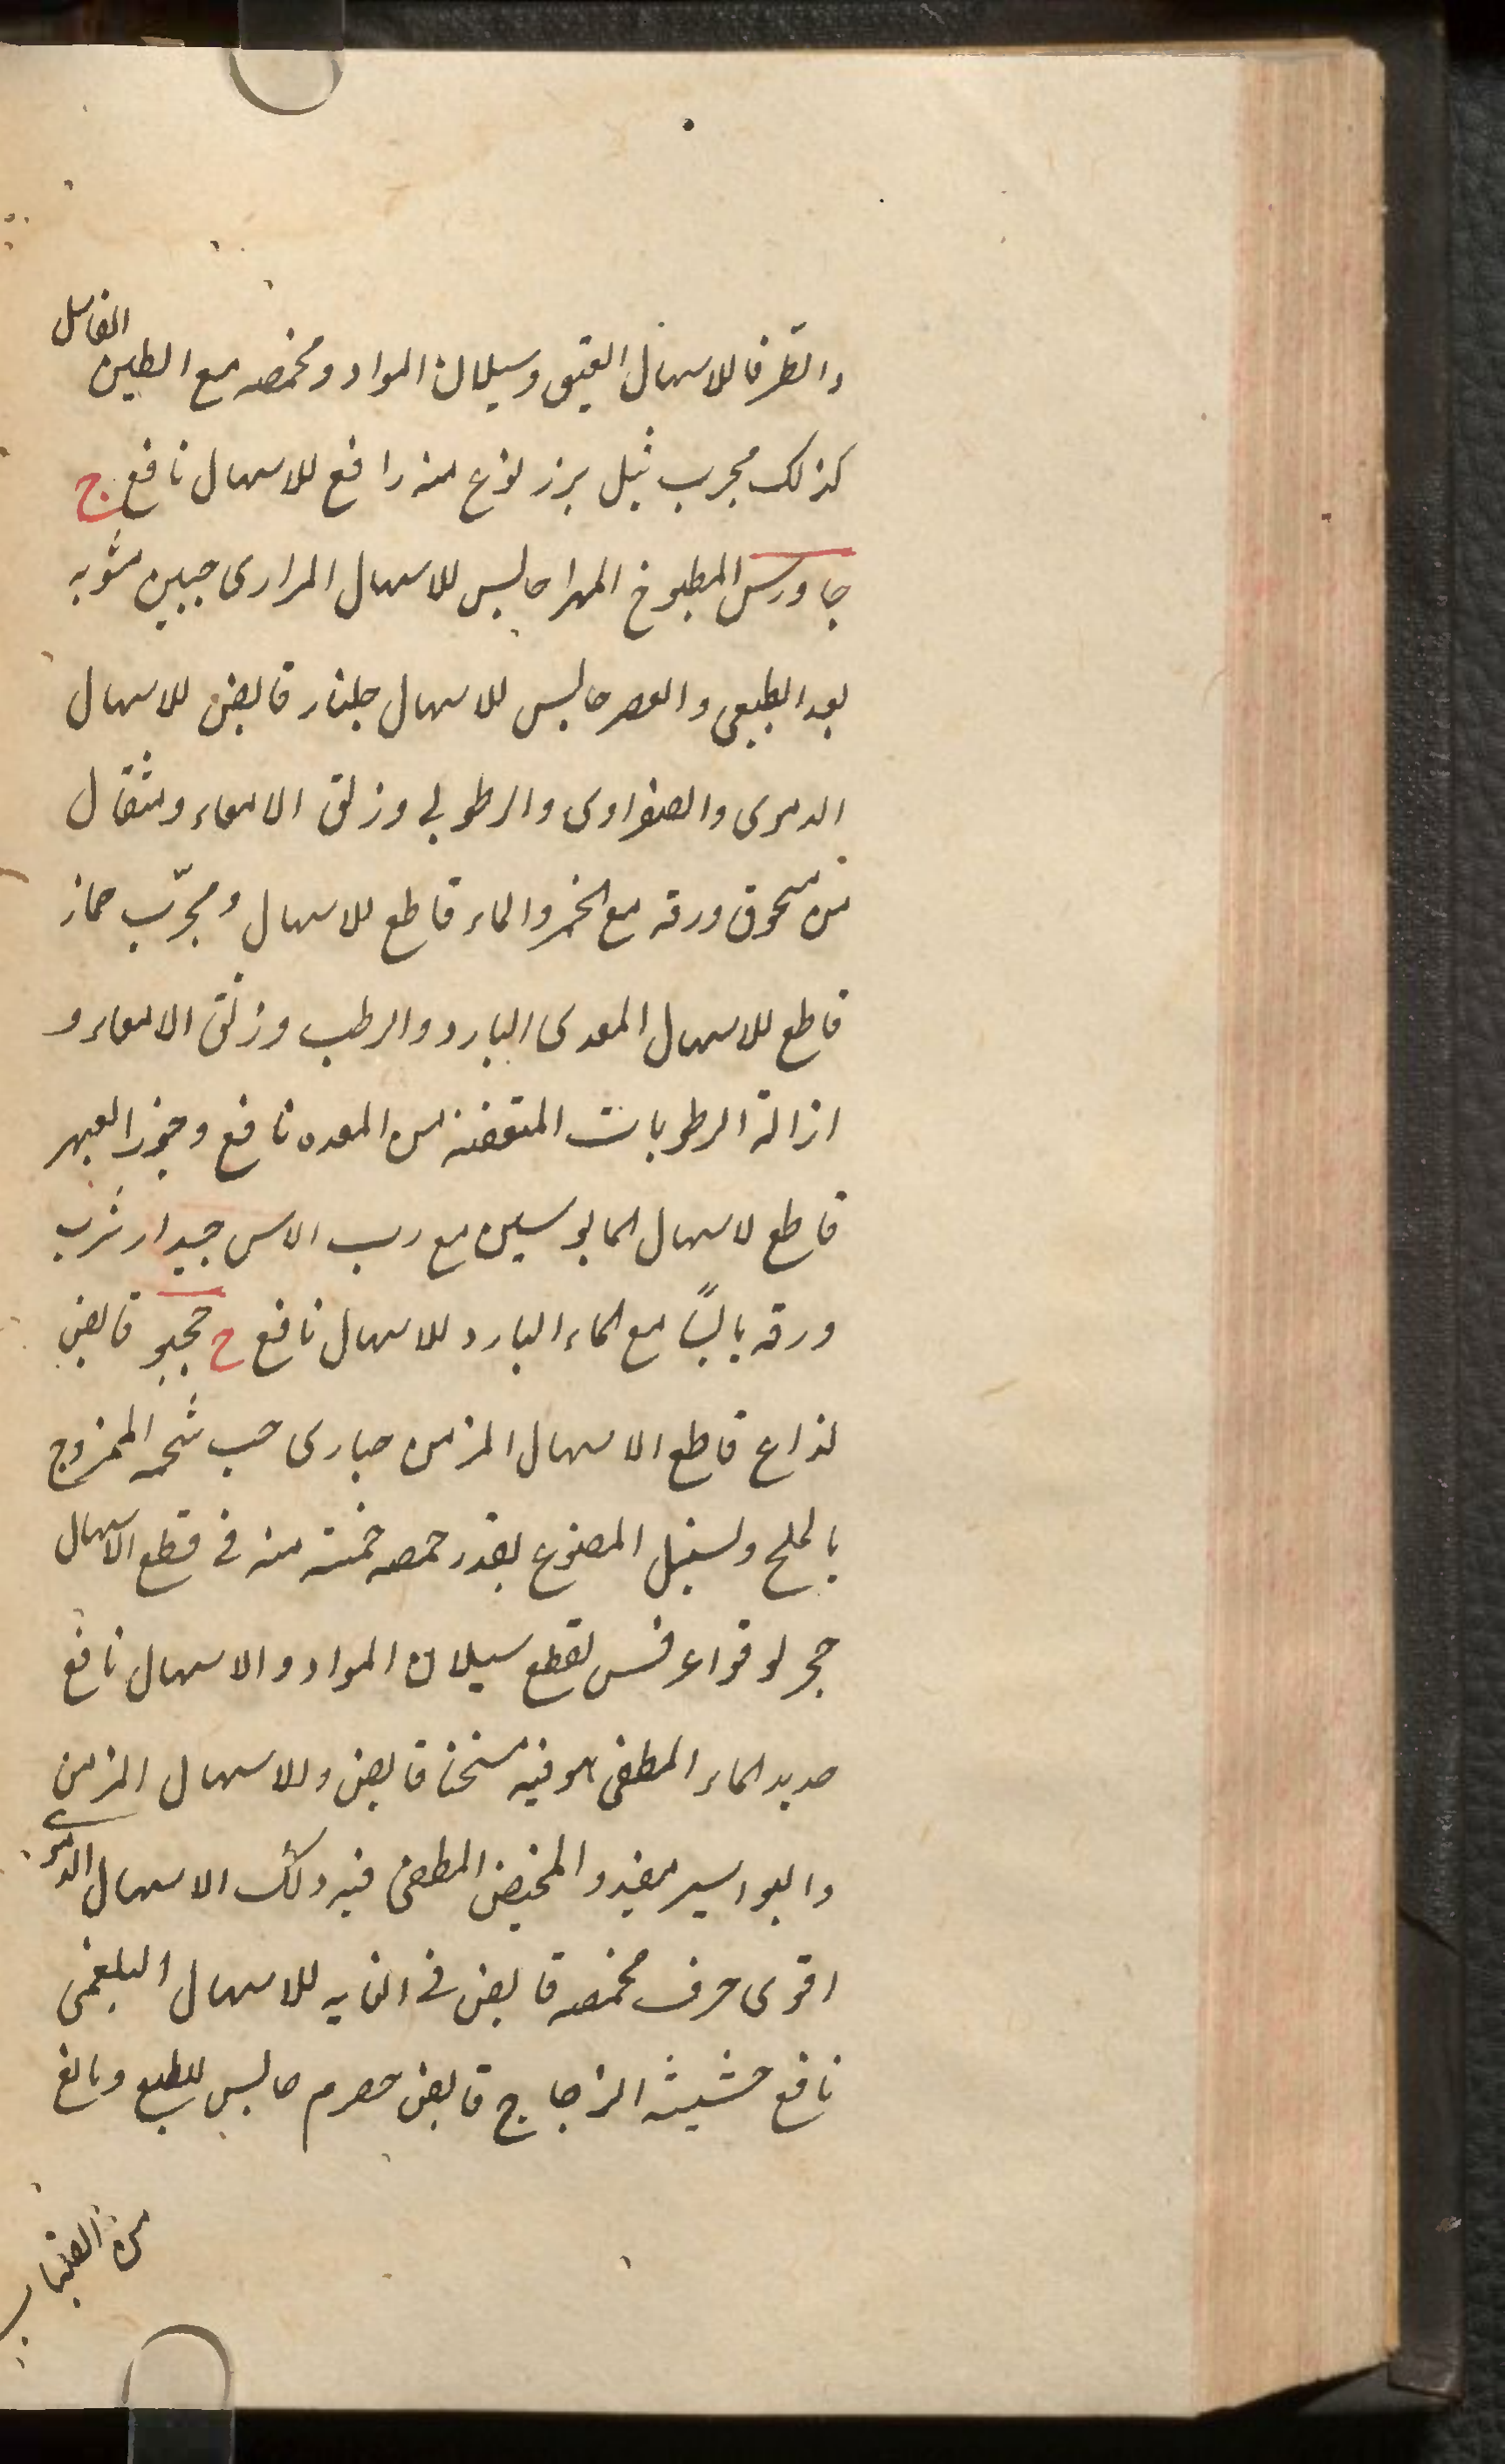 والطرفا للاسهال العتيق وسيلان المواد ومحمصه مع الطين الفاسل
كذلك مجرب ثيل برز نوع منه رافع للاسهال نافع ج
جاورس المطبوخ المهرا حابس للاسهال المرارى جبن مشويه
بعد الطبعى والعصر حابس للاسهال جلنار قابض للاسهال
الدموى والصفراوى والرطوبى وزلق الامعاء ومثقال
من مسحوق ورقه مع الخمر والماء قاطع للاسهال ومجرّب جماز
قاطع للاسهال المعدى البارد والرطب وزلق الامعاء و
ازالة الرطوبات المتعفنه من المعده نافع وجوز العبهر
قاطع لاسهال المايوسين مع رب الاس جيدار شرب
ورقه يابسًا مع الماء البارد للاسهال نافع ح قابض
لذاع قاطع الاسهال المزمن حبارى حب شحمه الممزوج
بالملح وسنبل المصنوع بقدر حمصه خمسة منه فى قطع الاسهال
حجر لوقواعرفس لقطع سيلان المواد والاسهال نافع
حديد الماء المطفى هو فيه مسخنا قابض وللاسهال المزمن
والبواسير مفيد والمخيض المطفى فيه ذلك الاسهال الدموى
اقوى حرف محمصه قابض فى الغايه للاسهال البلغمى
نافع حشيشة الزجاج قابض حصرم حابس للطبع ومانع
من انصباب